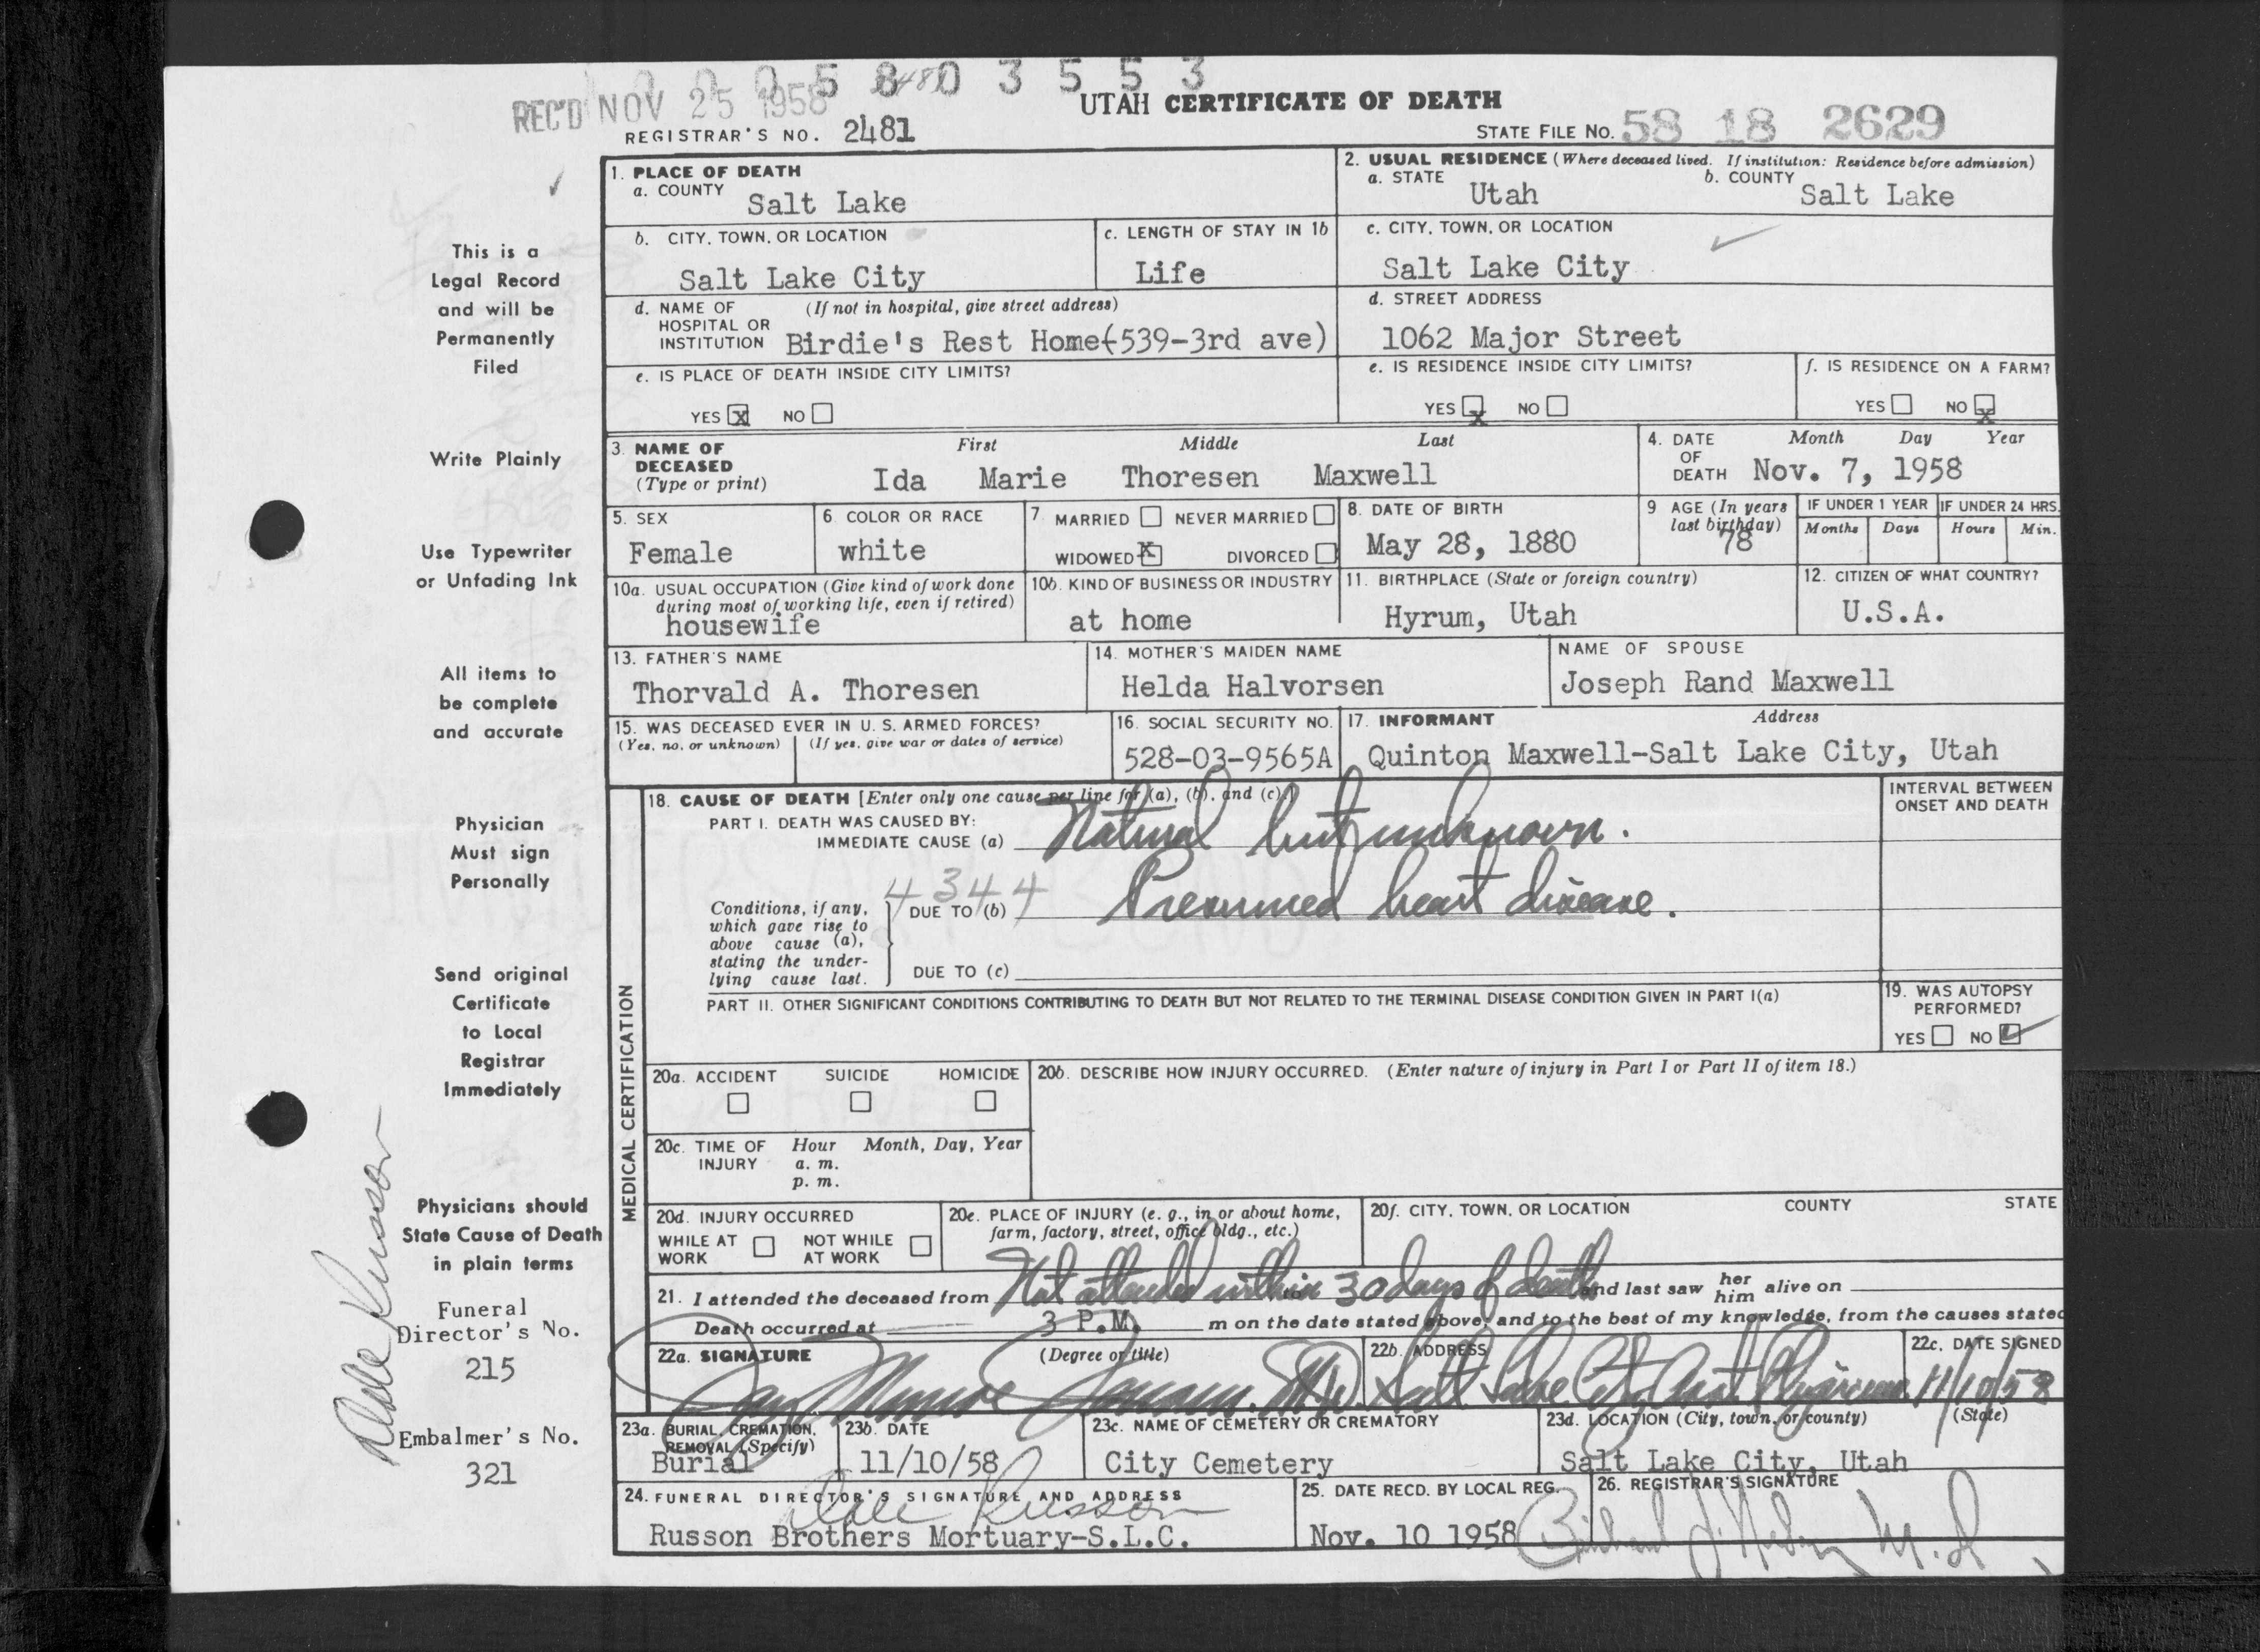 0 0 0 5 8 0 3 5 5 3
REC'D NOV 25 1958
UTAH CERTIFICATE OF DEATH
REGISTRAR'S NO. 2481
STATE FILE NO. 58 18 2629
1. PLACE OF DEATH
a. COUNTY
Salt Lake
2. USUAL RESIDENCE (Where deceased lived. If institution: Residence before admission)
a. STATE
Utah
b. COUNTY
Salt Lake
b. CITY, TOWN, OR LOCATION
Salt Lake City
c. LENGTH OF STAY IN 1b
Life
c. CITY, TOWN, OR LOCATION
Salt Lake City
d. NAME OF HOSPITAL OR INSTITUTION
(If not in hospital, give street address)
Birdie's Rest Home(539-3rd ave)
d. STREET ADDRESS
1062 Major Street
e. IS PLACE OF DEATH INSIDE CITY LIMITS?
YES X NO
e. IS RESIDENCE INSIDE CITY LIMITS?
YES X NO
f. IS RESIDENCE ON A FARM?
YES NO X
3. NAME OF DECEASED (Type or print)
First Middle Last
Ida Marie Thoresen Maxwell
4. DATE OF DEATH
Month Day Year
Nov. 7, 1958
5. SEX
Female
6 COLOR OR RACE
white
7 MARRIED NEVER MARRIED
WIDOWED X DIVORCED
8. DATE OF BIRTH
May 28, 1880
9 AGE (In years last birthday)
78
IF UNDER 1 YEAR
Months Days
IF UNDER 24 HRS.
Hours Min.
10a. USUAL OCCUPATION (Give kind of work done during most of working life, even if retired)
housewife
10b. KIND OF BUSINESS OR INDUSTRY
at home
11. BIRTHPLACE (State or foreign country)
Hyrum, Utah
12. CITIZEN OF WHAT COUNTRY?
U.S.A.
13. FATHER'S NAME
Thorvald A. Thoresen
14. MOTHER'S MAIDEN NAME
Helda Halvorsen
NAME OF SPOUSE
Joseph Rand Maxwell
15. WAS DECEASED EVER IN U. S. ARMED FORCES?
(Yes, no, or unknown) (If yes, give war or dates of service)
16. SOCIAL SECURITY NO.
528-03-9565A
17. INFORMANT Address
Quinton Maxwell-Salt Lake City, Utah
MEDICAL CERTIFICATION
18. CAUSE OF DEATH [Enter only one cause per line for (a), (b), and (c).]
PART I. DEATH WAS CAUSED BY:
IMMEDIATE CAUSE (a) Natural but unknown.
INTERVAL BETWEEN ONSET AND DEATH
4344
Conditions, if any, which gave rise to above cause (a), stating the underlying cause last.
DUE TO (b) Presumed heart disease.
DUE TO (c)
PART II. OTHER SIGNIFICANT CONDITIONS CONTRIBUTING TO DEATH BUT NOT RELATED TO THE TERMINAL DISEASE CONDITION GIVEN IN PART I(a)
19. WAS AUTOPSY PERFORMED?
YES NO ✓
20a. ACCIDENT SUICIDE HOMICIDE
20b. DESCRIBE HOW INJURY OCCURRED. (Enter nature of injury in Part I or Part II of item 18.)
20c. TIME OF INJURY
Hour Month, Day, Year
a. m.
p. m.
20d. INJURY OCCURRED
WHILE AT WORK NOT WHILE AT WORK
20e. PLACE OF INJURY (e. g., in or about home, farm, factory, street, office bldg., etc.)
20f. CITY, TOWN, OR LOCATION COUNTY STATE
21. I attended the deceased from Not attended within 30 days of death and last saw her him alive on
Death occurred at 3 P.M. m on the date stated above; and to the best of my knowledge, from the causes stated
22a. SIGNATURE (Degree or title)
Jay Munroe M.D.
22b. ADDRESS
Salt Lake City Asst Physician
22c. DATE SIGNED
11/10/58
23a. BURIAL, CREMATION, REMOVAL (Specify)
Burial
23b. DATE
11/10/58
23c. NAME OF CEMETERY OR CREMATORY
City Cemetery
23d. LOCATION (City, town, or county) (State)
Salt Lake City, Utah
24. FUNERAL DIRECTOR'S SIGNATURE AND ADDRESS
Dale Russon
Russon Brothers Mortuary-S.L.C.
25. DATE RECD. BY LOCAL REG.
Nov. 10 1958
26. REGISTRAR'S SIGNATURE
M.D.
This is a
Legal Record
and will be
Permanently
Filed
Write Plainly
Use Typewriter
or Unfading Ink
All items to
be complete
and accurate
Physician
Must sign
Personally
Send original
Certificate
to Local
Registrar
Immediately
Physicians should
State Cause of Death
in plain terms
Funeral
Director's No.
215
Embalmer's No.
321
Dale Russon